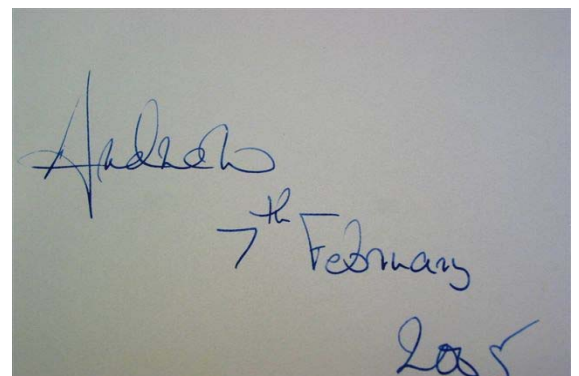 Andrew
7th February
2005